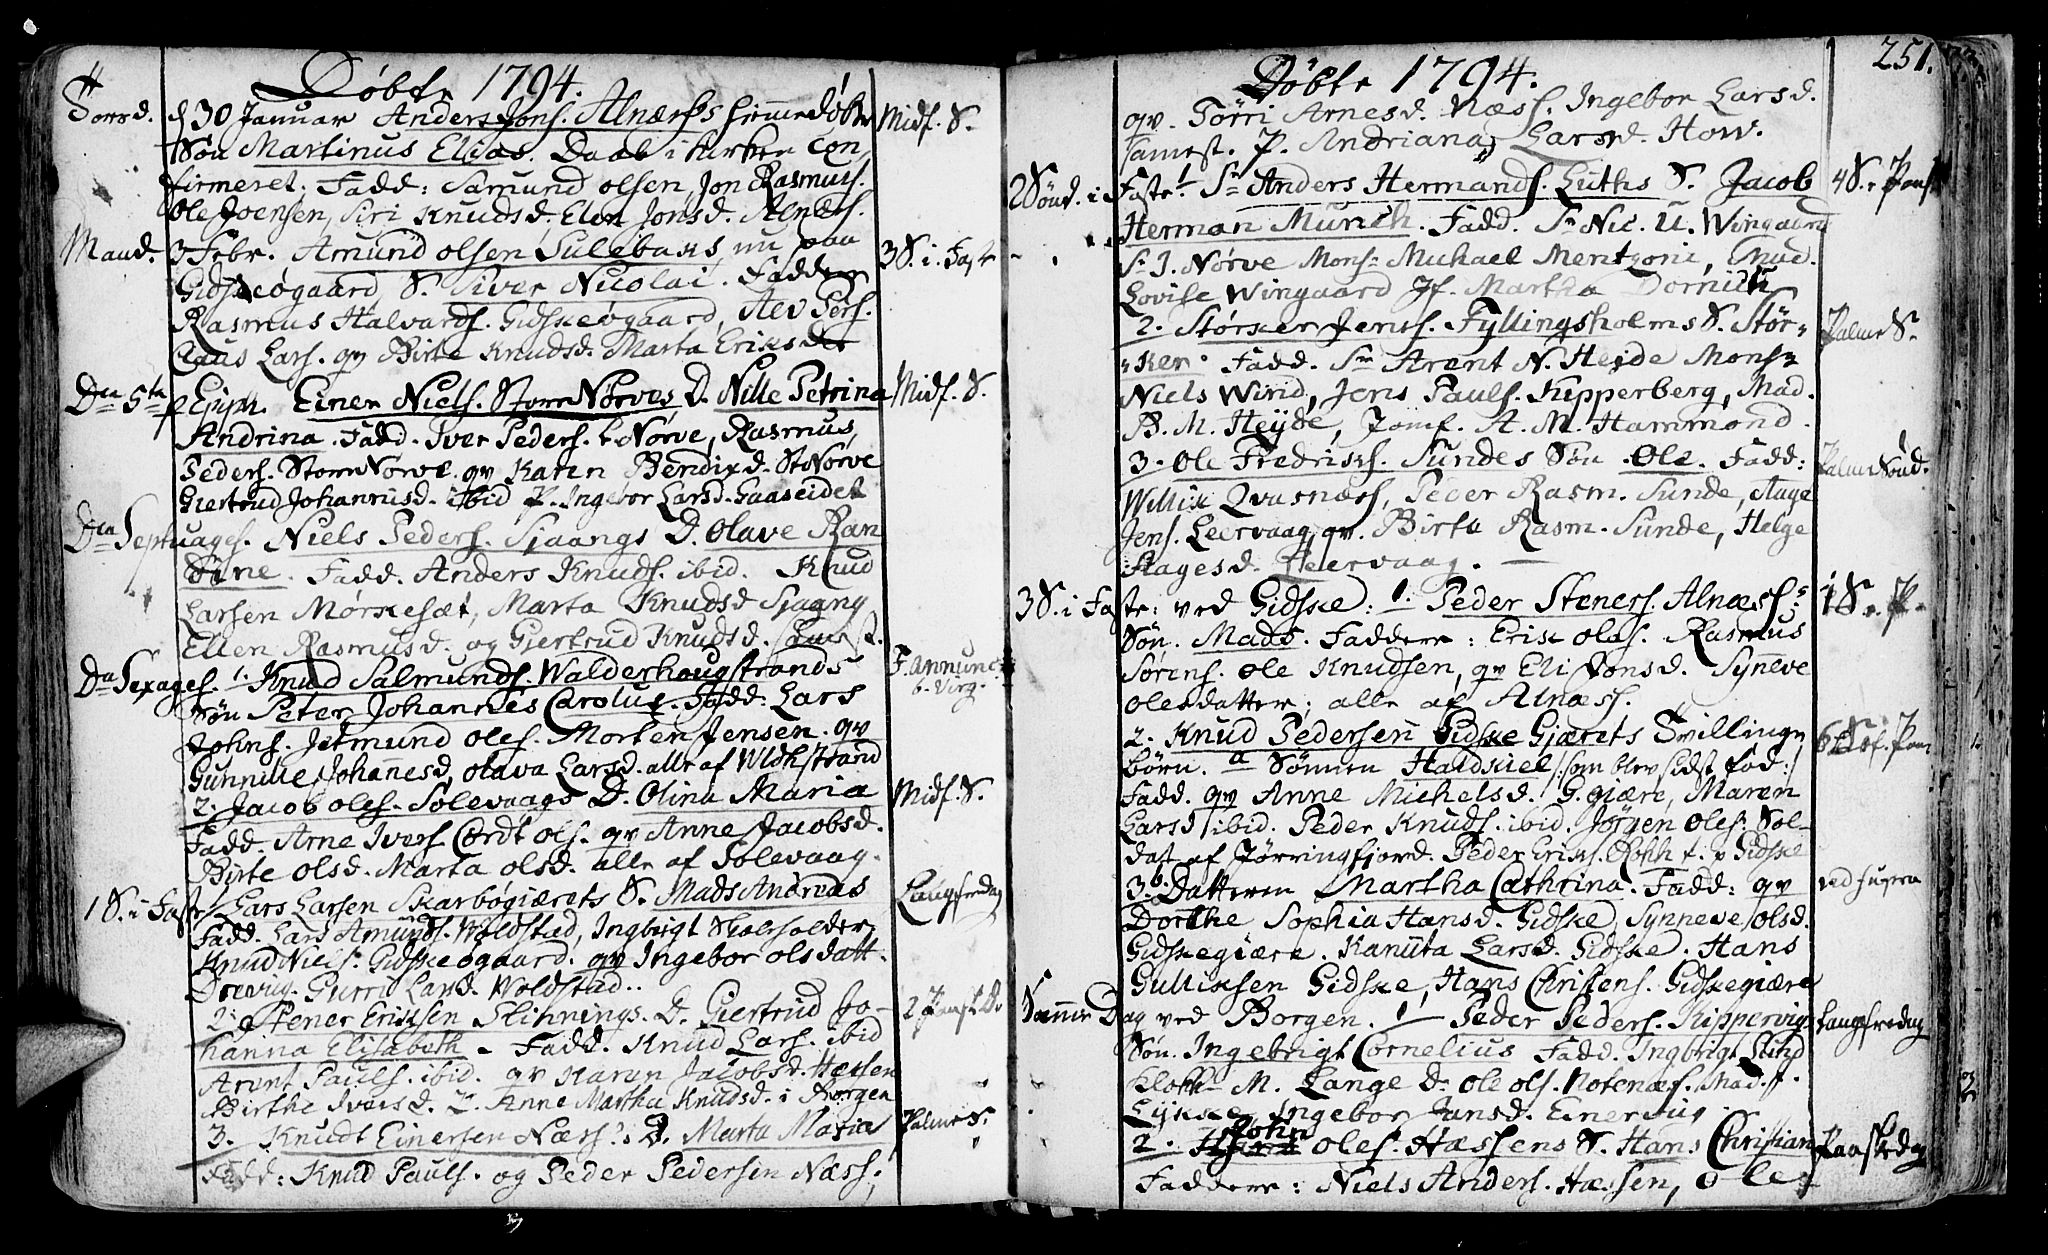 Døbte 1794.
Torsd. d 30 Januar Anders Jons. Alnæss hiemmedøbte Midf. S.
Søn Martinus Elias. Daab i kirken Con
firmeret. Fadd: Samund olsen, Jon Rasmus.
Ole Joensen, Siri Knudsd. Elen Jonsd. Alnæss.
Mand. 3 Febr. Amund olsen Sulebaks, nu paa 3 S. i Faste
Gidskeøgaard S. Siver Nicolai. Faddere
Rasmus Halvards. Gidskeøgaard, Aev Pers.
Claus Lars. qv Birte Knudsd. Marta Eriksd
Dca 5ta p Epiph. Einer Niels. StorNørves D. Nille Petrina Midf. S.
Andrina. Fadd. Iver Peders. L. Nørve, Rasmus
Peders. StorNørve. qv Karen Bendixd. StNørve
Giertrud Johannisd. ibid P. Ingebor Larsd. Gaaseidet
Dca Septuages. Niels Peders. Sjaangs D. Olave Ran
Sine. Fadd. Anders Knuds. ibid. Knud
Larsen Mørkesæt, Marta Knudsd Sjaang
Ellen Rasmusd. og Gjertrud Knudsd. samest.
Dca Sexages. 1. Knud Salmunds. Walderhougstrands F. Annunc.
b. Virg.
Søn Peter Johannes Carolus. Fadd: Lars
Johns. Jetmund oles. Morten Jensen. qv
Gunnille Johannesd, olava Larsd. alle af Wldhstrand
2. Jacob oles. Solevaags D. Olina Maria Midf. S.
Fadd. Arne Ivers Cordt ols. qv Anne Jacobsd.
Birte olsd. Marta olsd. alle af Solevaag.
1 S. i Faste Lars Larsen Skarbøgiærets S. Mads Andreas Langfredag
Fadd. Lars Amunds. Woldstad, Ingbrigt Skoleholder
Knud Niels. Gidskeøgaard. qv Ingebor olsdatt.
Drevig. Gurru Larsd. Woldstad..
2. Stener Eriksen Slinnings. D. Giertrud Jo-
hanna Elisabeth. Fadd. Knud Lars. ibid
Arent Pauls. ibid. qv Karen Jacobsd. Hæssen
Birthe Iversd. Anne Martha Knudsd. i Borgen
3. Knudt Einersen Næss. D. Marta Maria Palme S.
Fadd: Knud Pauls. og Peder Pedersen Næss,
251.
Døbte 1794.
qv. Tørri Arnesd. Næss. Ingebor Larsd.
samest. P. Andriana Larsd. How.
2 Sønd. i Faste. 1. Sr Anders Hermands. Luths S. Jacob 4 S. Paaske
Herman Munch. Fadd. Sr Nic. U. Wingaard
Sr J. Nørve Monsr Michael Mentzoni, Mad.
Lovise Wingaard Jf. Martha Dornich
2. Størker Jens. Fyllingsholms S. Stør- Palme S.
ker. Fadd. Sr Arent N. Heyde Monsr
Niels Wind, Jens Pauls. Kipperberg, Mad.
B. M. Heyde, Jomf. A. M. Hammond.
3. Ole Fredriks. Sundes Søn. Ole. Fadd: Palme Sønd.
Willix Qvasnæss, Peder Rasm. Sunde, Aage
Jens. Leervaag, qv. Birta Rasm. Sunde, Helge
Aagesd. Leervaag.
3 S. i Faste: ved Gidske: 1. Peder Steners. Alnæss
Søn. Mads. Faddere: Erik olas. Rasmus
Sørens. ole Knudsen, qv Eli Jonsd. Synneve
olesdatter; alle af Alnæss.
2. Knud Pedersen Gidske Gjærets Tvillinge
børn. a Sønnen Haldskel /:som blev sidst fød:/
Fadd. qv Anne Michelsd. G.giære, Maren
Larsd ibid. Peder Knuds. ibid. Jørgen oles. Sol-
dat af Jørringfjord. Peder Eriks. Gidske
3. b. Datteren Martha Cathrina. Fadd: qv ved Jugera
Dorthe Sophia Hansd. Gidske, Synneve olsd.
Gidskegiære. Kanuta Larsd. Gidske. Hans
Gulliksen Gidske, Hans Christens. Gidskegiære
Samme Dag ved Borgen. 1. Peder Peders. Kippervig Langfredag
Søn. Ingebrigt Cornelius Fadd. Ingbrigt Lund
Klokk. M. Lange D. ole ols. Notenæs. Mad.
Lykke Ingebor Jansd. Enerhug
2. John oles. Hæssens S. Hans Christian Paaskedag
Faddere: Niels Anders. Hæssen, ole